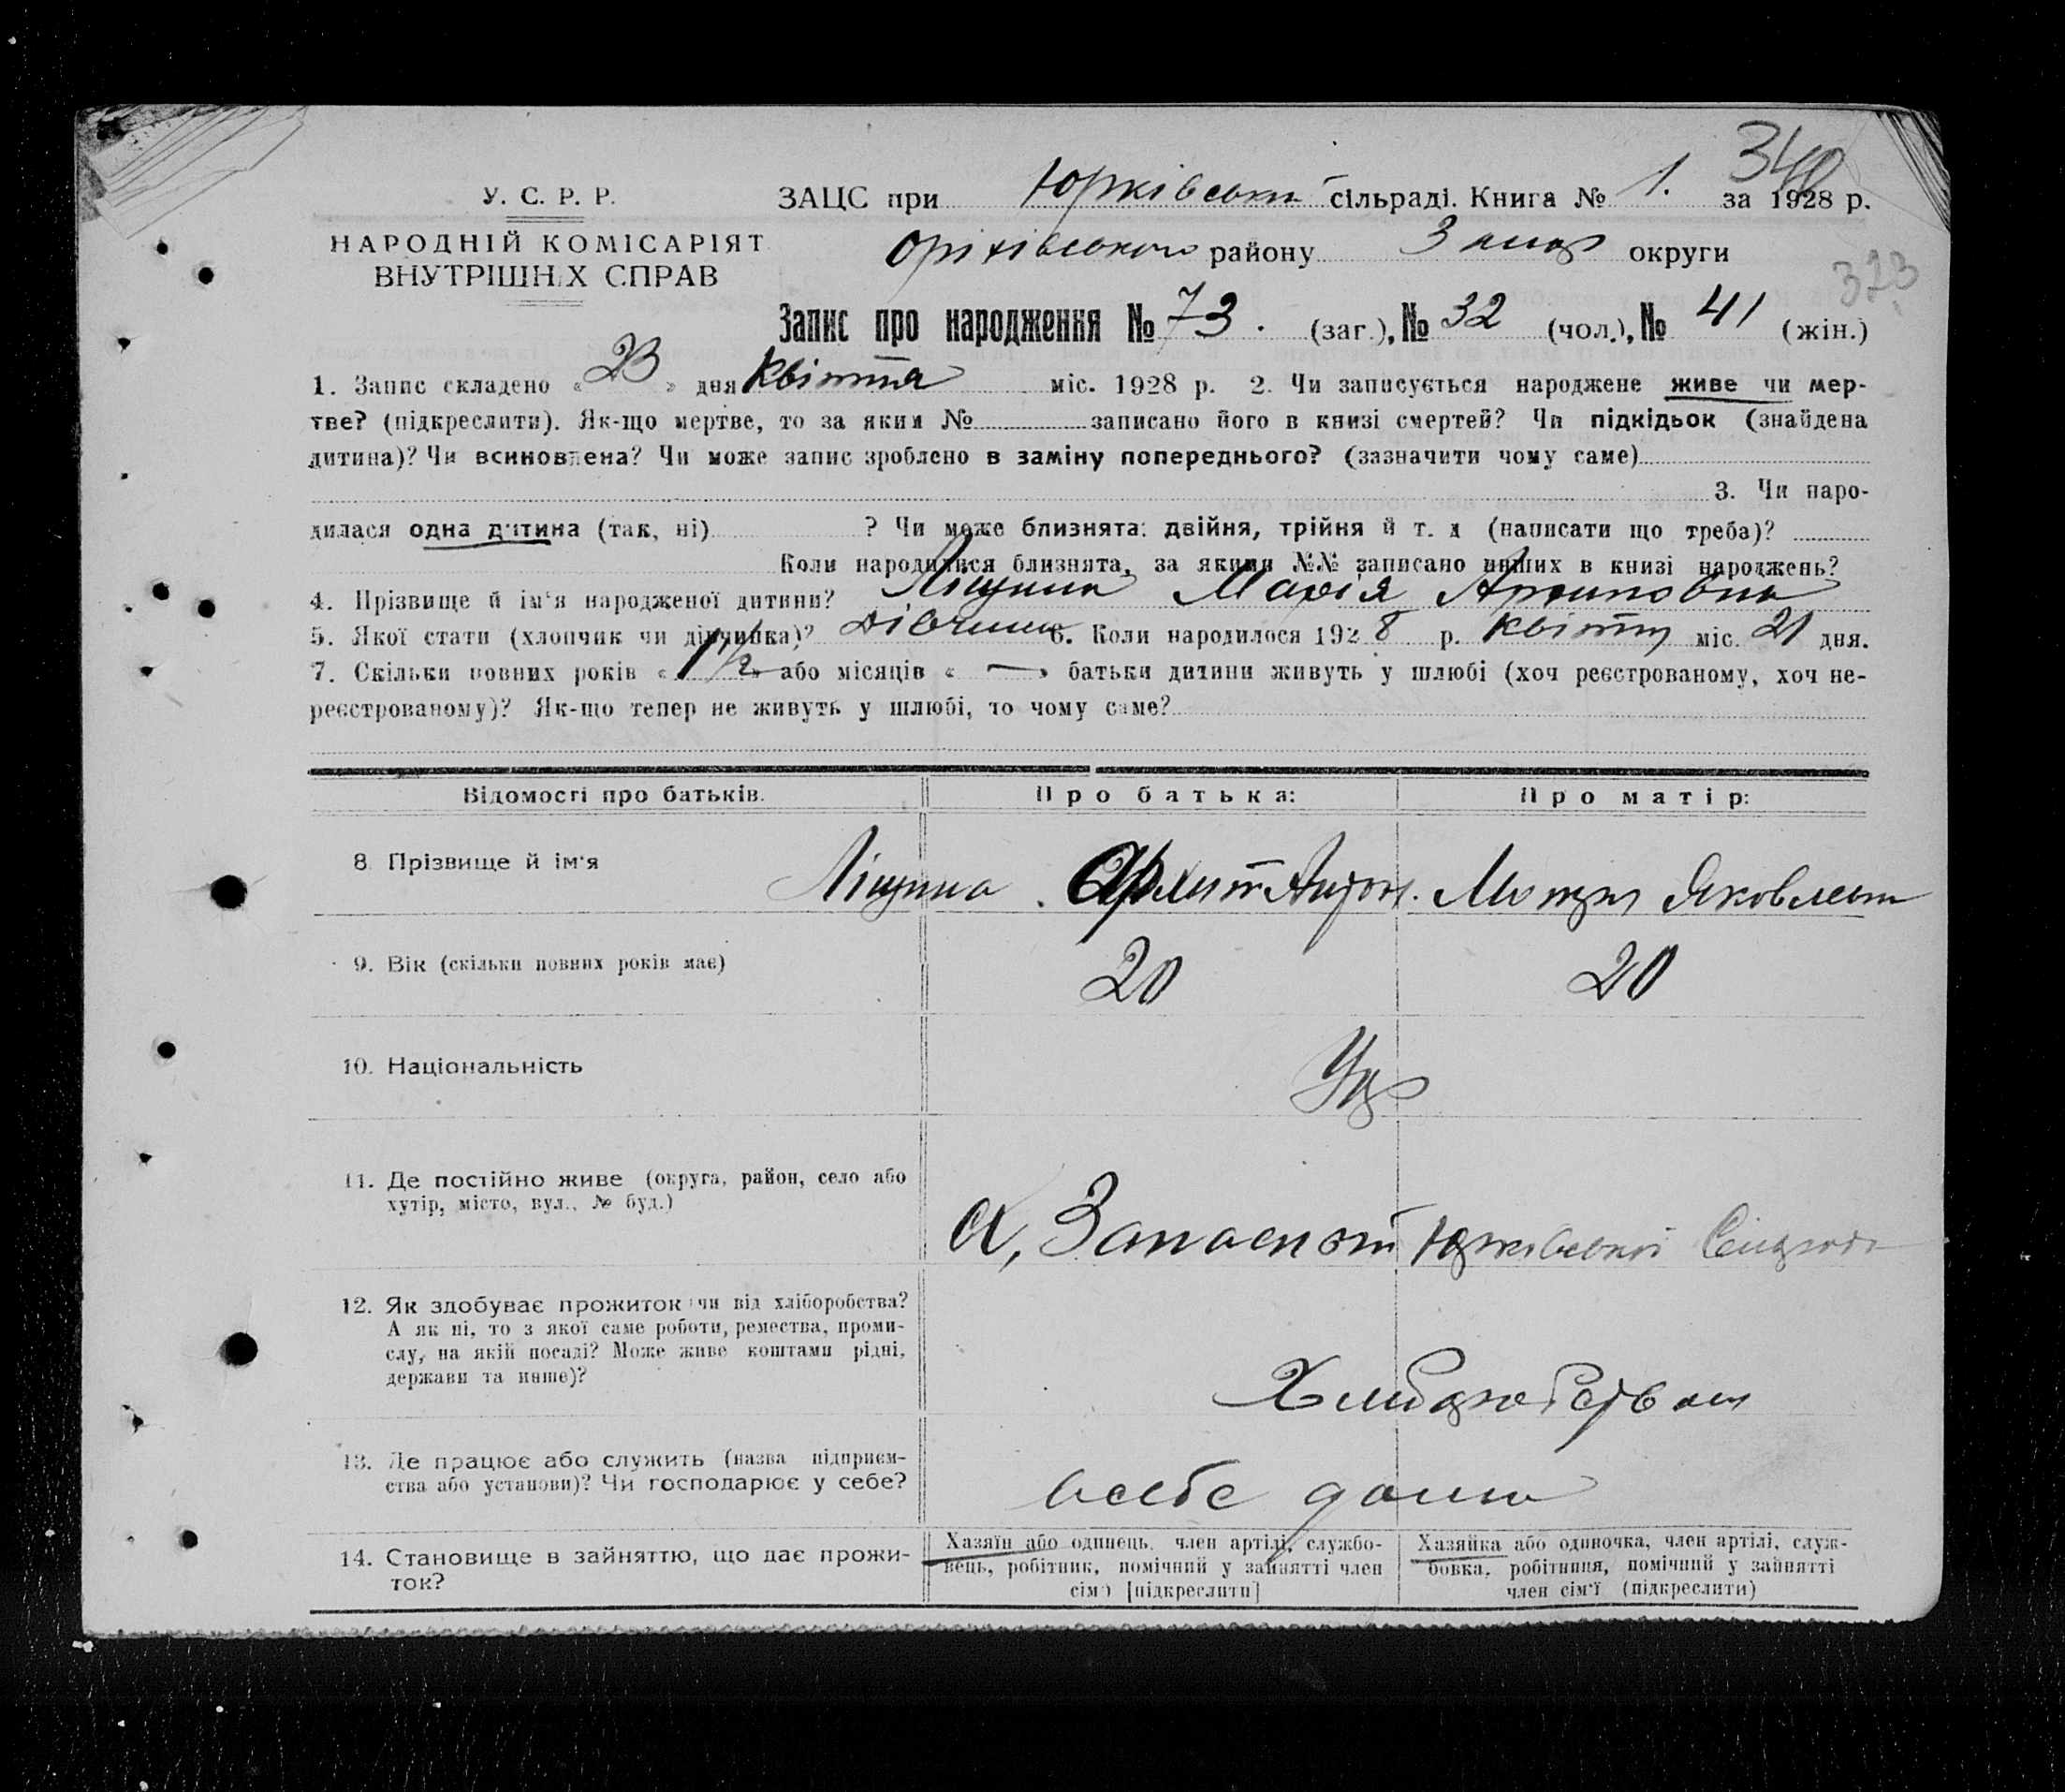 340
У. С. Р. Р.
ЗАЦС при Юрківськ сільраді. Книга № 1. за 1928 р.
НАРОДНІЙ КОМІСАРІЯТ
ВНУТРІШНІХ СПРАВ
Оріхівського району Запор округи
323
Запис про народження № 73. (заг.), № 32 (чол.), № 41 (жін.)
1. Запис складено « 23 » дня Квітня міс. 1928 р. 2. Чи записується народжене живе чи мер-
тве? (підкреслити). Як-що мертве, то за яким № записано його в книзі смертей? Чи підкідьок (знайдена
дитина)? Чи всиновлена? Чи може запис зроблено в заміну попереднього? (зазначити чому саме)
3. Чи наро-
дилася одна дитина (так, ні) ? Чи може близнята: двійня, трійня й т. д (написати що треба)?
Коли народилися близнята, за якими №№ записано инших в книзі народжень?
4. Прізвище й ім'я народженої дитини? Ліщина Марія Архиповна
5. Якої стати (хлопчик чи дівчинка)? Дівчина 6. Коли народилося 1928 р. Квітня міс. 21 дня.
7. Скільки повних років « 1 1/2 » або місяців « — » батьки дитини живуть у шлюбі (хоч реєстрованому, хоч не-
реєстрованому)? Як-що тепер не живуть у шлюбі, то чому саме?
Відомості про батьків. Про батька: Про матір:
8. Прізвище й ім'я Ліщина Архип Яковлевна
9. Вік (скільки повних років має) 20 20
10. Національність Укр
11. Де постійно живе (округа, район, село або
хутір, місто, вул., № буд.)
Юрківської Сільради
12. Як здобуває прожиток: чи від хліборобства?
А як ні, то з якої саме роботи, ремества, проми-
слу, на якій посаді? Може живе коштами рідні,
держави та инше)?
Хліборобством
13. Де працює або служить (назва підприєм-
ства або установи)? Чи господарює у себе?
в себе дома
14. Становище в зайняттю, що дає прожи-
ток?
Хазяїн або одинець, член артілі, службо-
вець, робітник, помічний у зайнятті член
сім'ї [підкреслити]
Хазяйка або одиночка, член артілі, служ-
бовка, робітниця, помічний у зайнятті
член сім'ї (підкреслити)